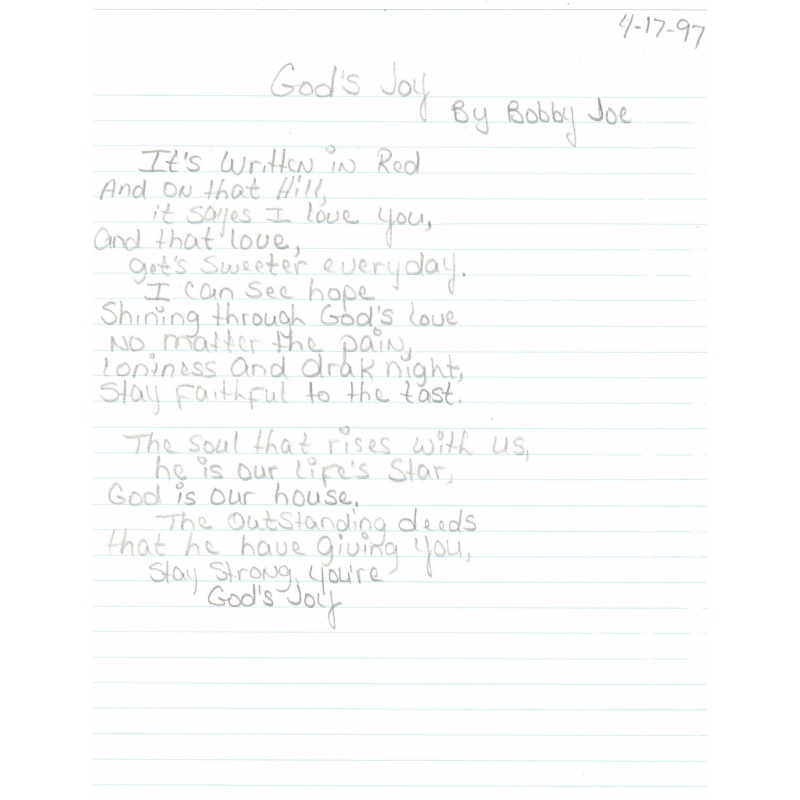 4-17-97
God's Joy
By Bobby Joe
It's written in Red
And on that Hill,
it sayes I love you,
And that love,
get's sweeter everyday.
I can see hope
Shining through God's love
No matter the pain,
loniness and drak night,
Stay faithful to the tast.
The soul that rises with us,
he is our life's Star,
God is our house.
The outstanding deeds
that he have giving you,
Stay Strong, you're
God's Joy